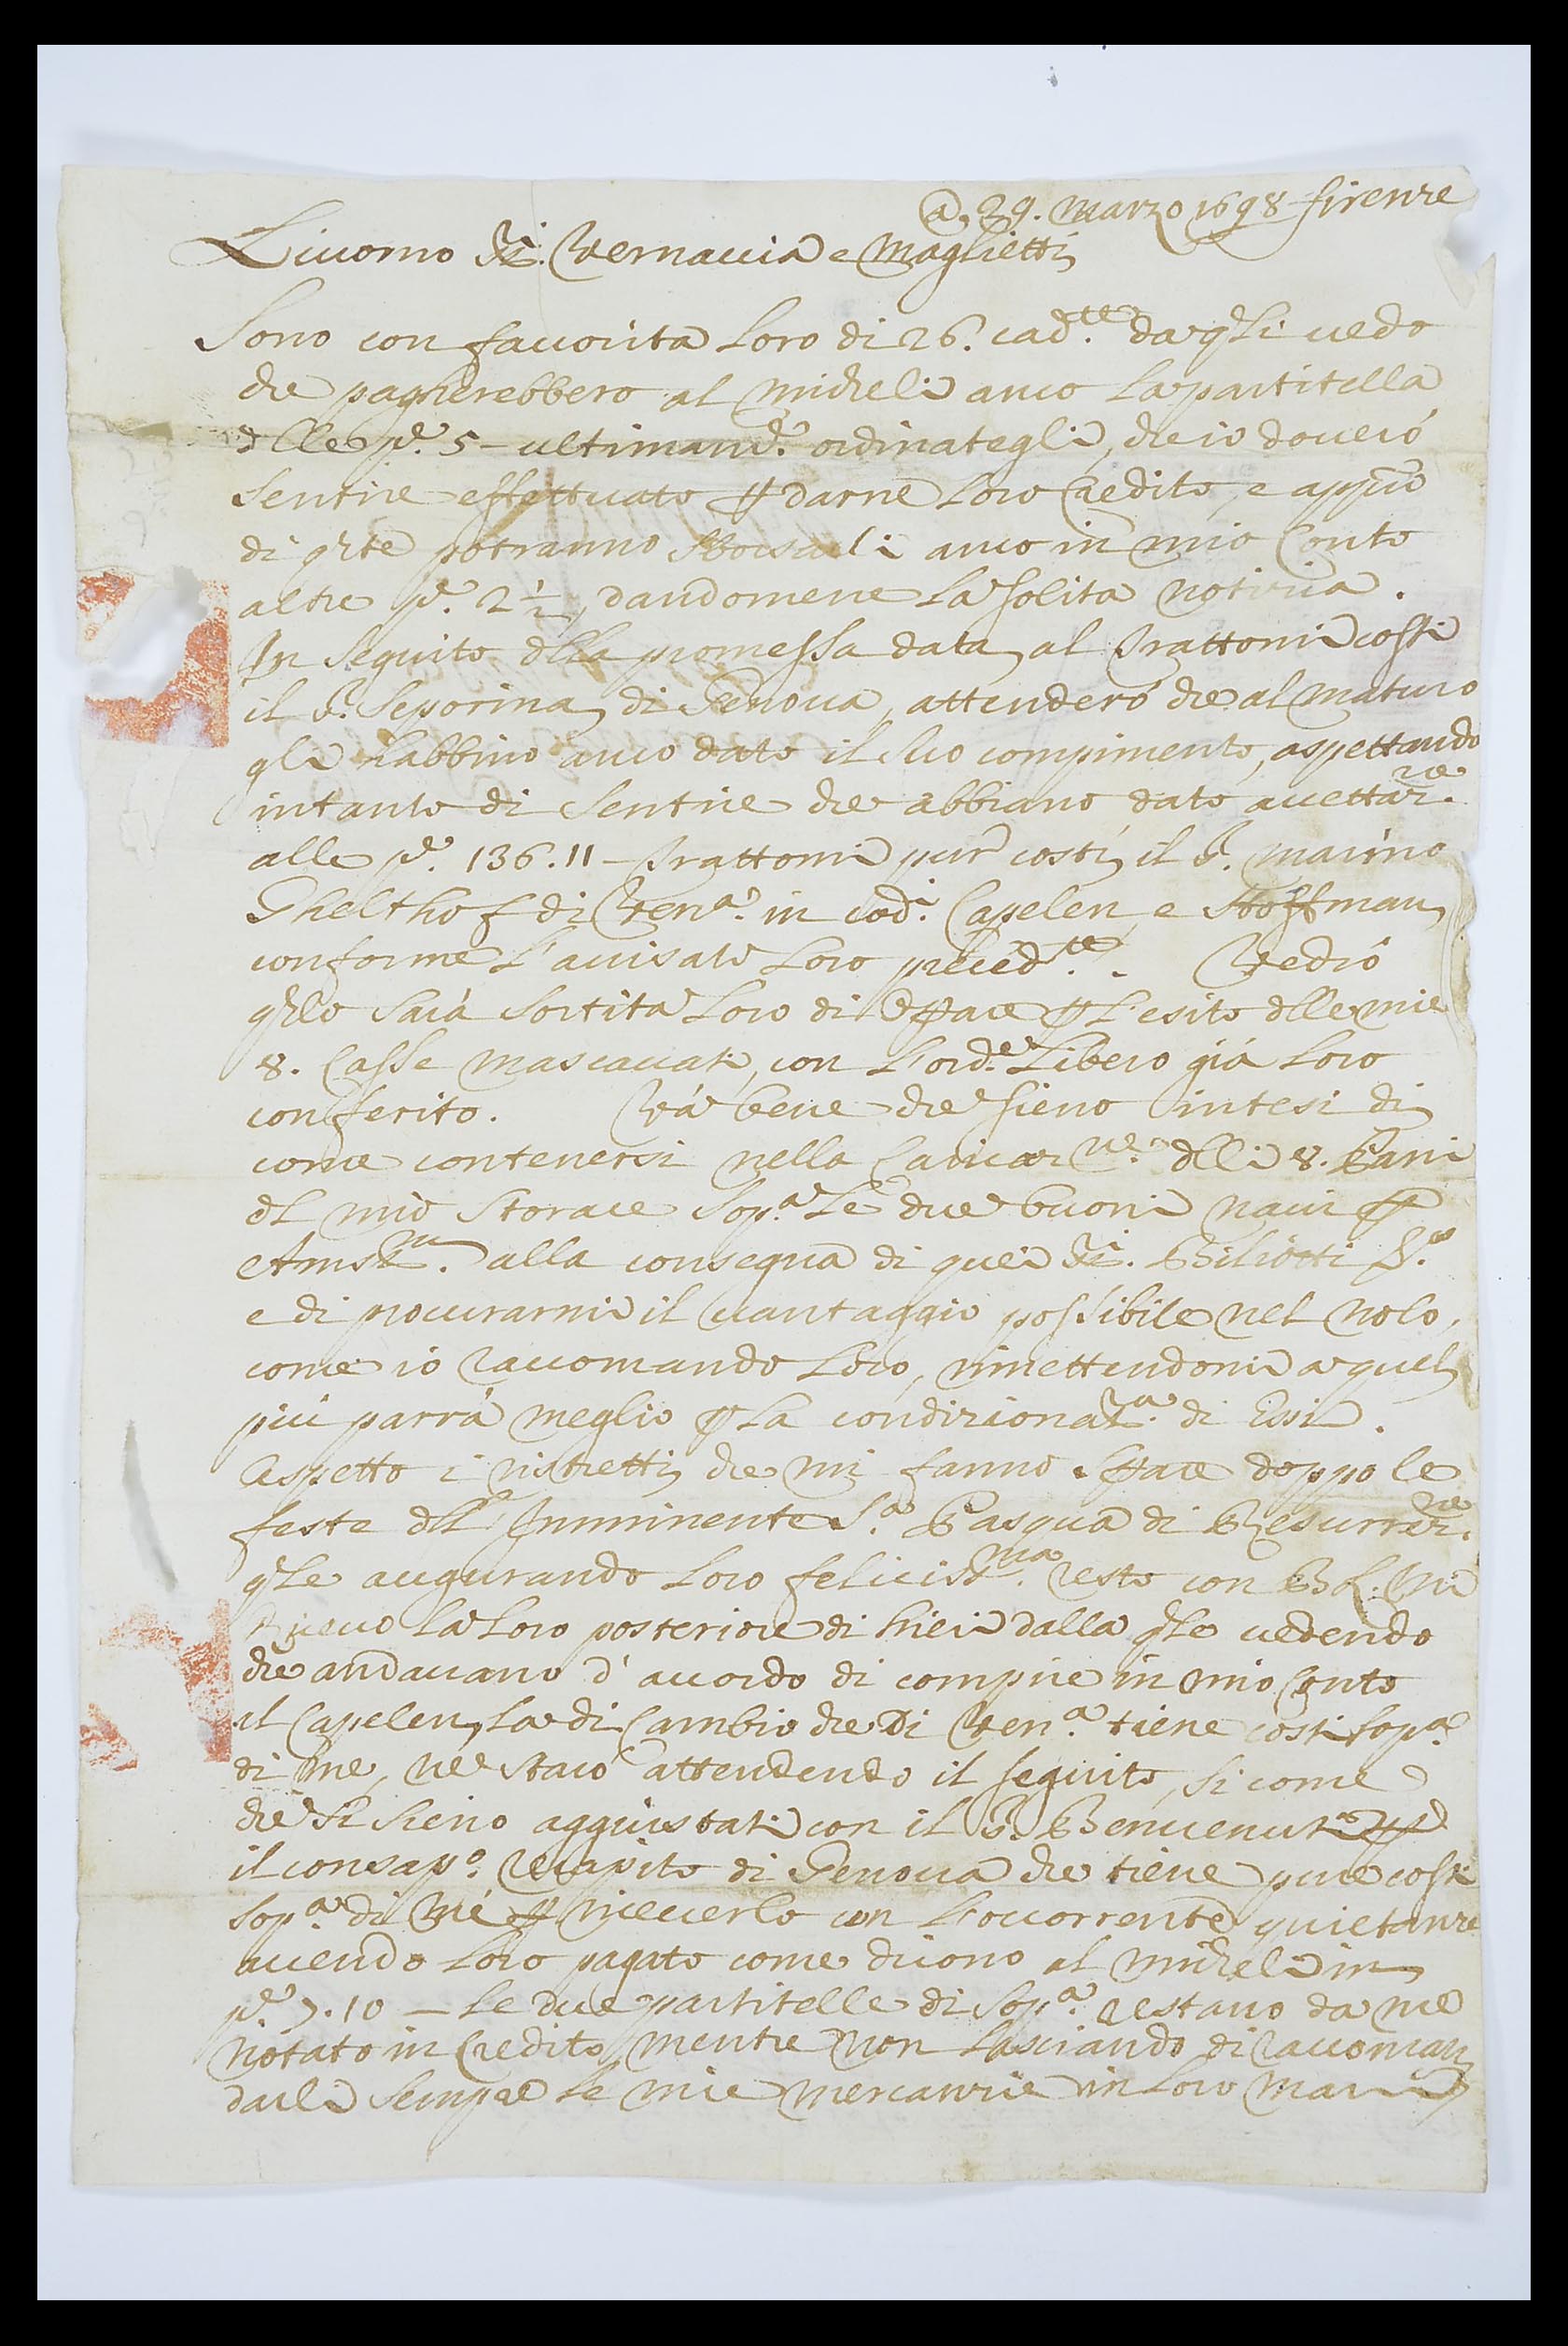 @ 29. Marzo 1698 firenze
Liuorno SS.ri Vernaccia e Maglietti
Sono con fauorita Loro di 26. cad.te da q.li uedo
che pagherebbero al Micheli anco La partitella
dlle p.e 5 – ultimam.te ordinategli, che io douerò
Sentire effettuato p darne Loro Credito, e app.o
di q.ste potranno Sborsarli anco in mio Conto
altre p.e 2½, dandomene La solita notizia.
In Seguito dlla promessa data al Trattomi costi
il S. Seporina di Genoua, attenderó che al maturo
gli habbino anco dato il Suo compimento, aspettando
intanto di Sentire che abbiano dato accettaz.ne
alle p.e 136.11 – Trattomi pur costì il S. Marino
Ghelthof di Ven.a in cod.i Capelen e Hoffman,
conforme L'auisato Loro preced.te. Vedró
q.llo Sará Sortita Loro di Oppare p L'esito dlle mie
8. Casse mascauati, con L'ord.e Libero giá Loro
conferito. Vá bene che sieno intesi di
come contenersi nella Caricaz.ne dlli 8. Bari
dl mio Storace Sop.a Le due buoni naui p
Amst.m alla consegna di quei SS.ri Biliotti
e di procurarmi il uantaggio possibile nel nolo,
come io raccomando Loro, rimettendomi a quel
più parrá meglio p La condizionat.a di Essi.
Aspetto i ristretti che mi fanno sppare doppo le
feste dll' Imminente S.a Pasqua di Resurrez.ne
q.le augurando Loro feliciss.ma resto con B.L.M.
Riceuo La Loro posteriore di hieri dalla q.le uedendo
che andauano d'accordo di compire in mio Conto
al Capelen, La di Cambio che Di Ven.a tiene costi Sop.a
di me, ne Starò attendendo il seguito, si come
che si Sieno aggiustati con il S. Benuenuti p
il consap.o recapito di Genoua che tiene pure costi
Sop.a di Mé p riceuerlo con L'occorrente quietanze
auendo Loro pagato come dicono al Micheli in
p.e 7.10 – Le due partitelle di Sop.a restano da me
notato in Credito, mentre non Lasciando di raccoman
darli Sempre Le mie mercanzie in Loro mani